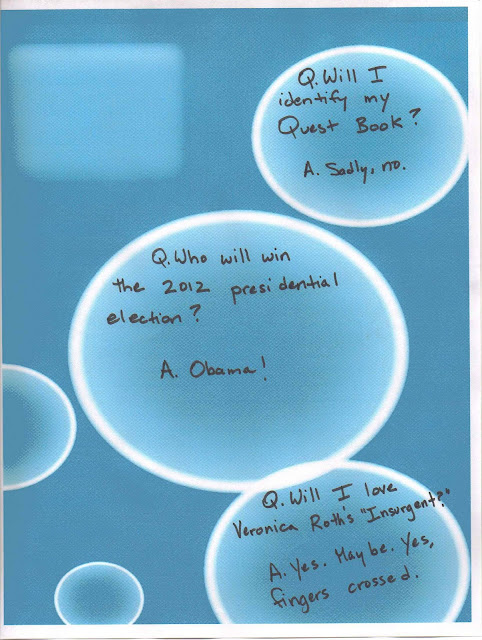 Q. Will I
identify my
Quest Book?
A. Sadly, no.
Q. Who will win
the 2012 presidential
election?
A. Obama!
Q. Will I love
Veronica Roth's "Insurgent?"
A. Yes. Maybe. Yes,
fingers crossed.